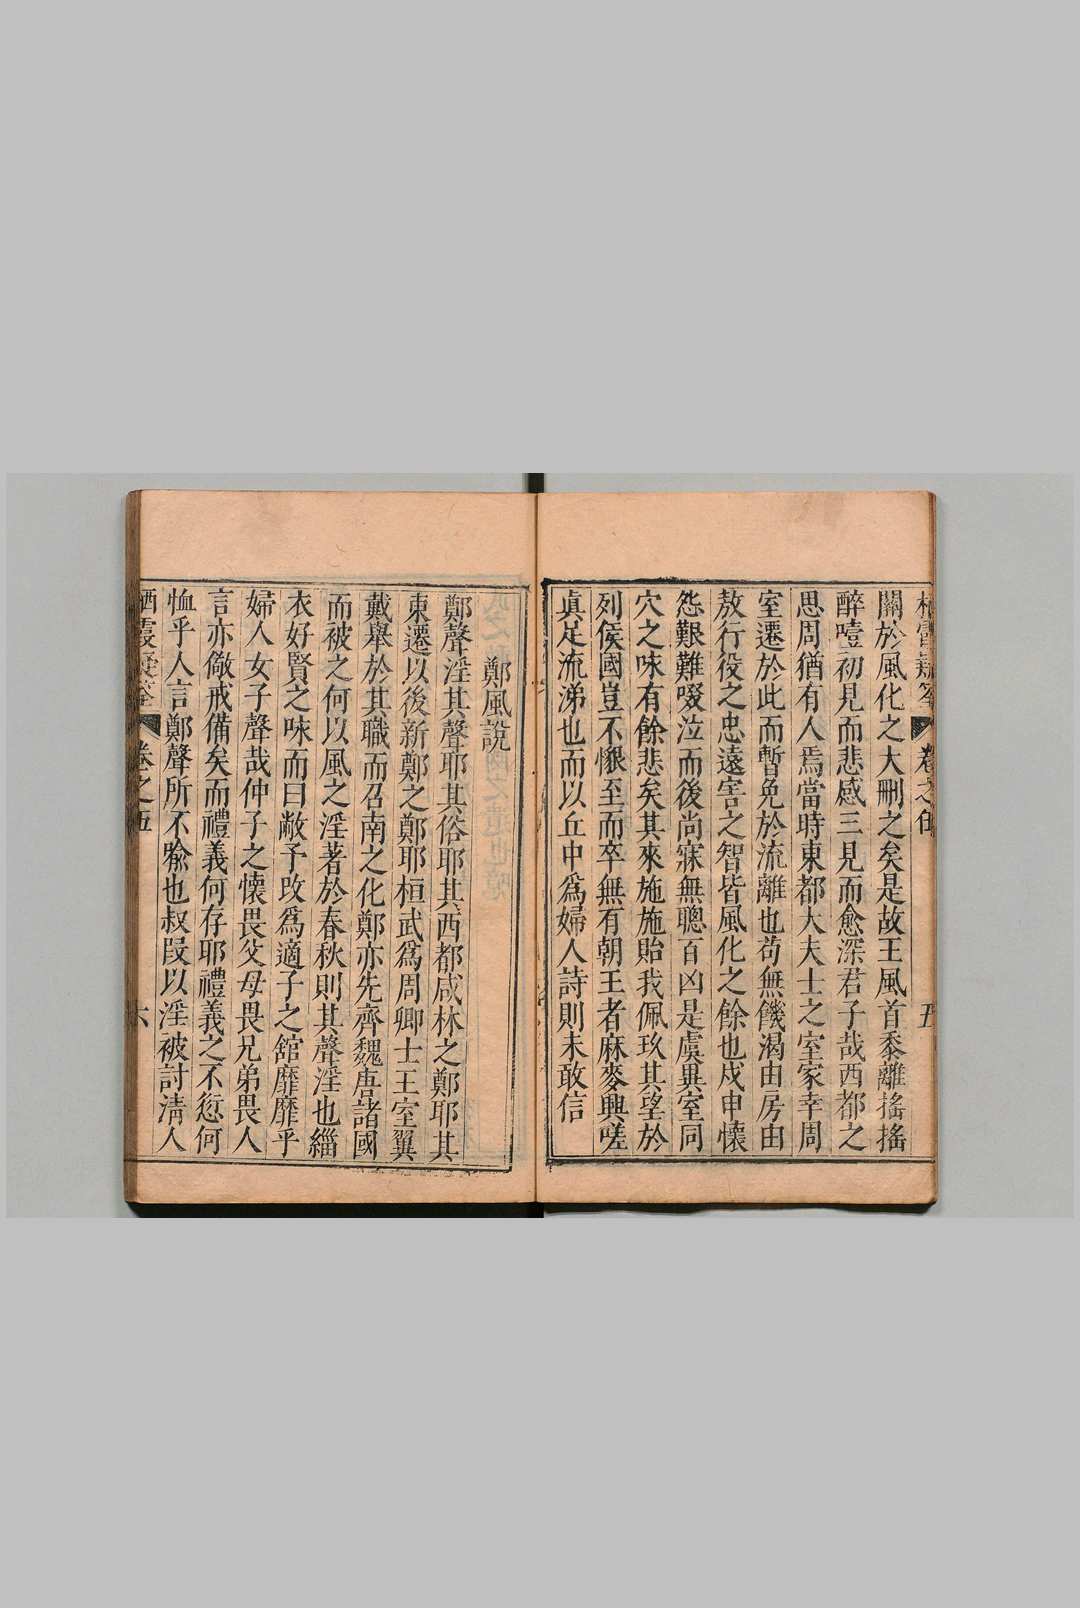 關於風化之大刪之矣是故王風首黍離搖搖
醉噎初見而悲感三見而愈深君子哉西都之
思周猶有人焉當時東都大夫士之室家幸周
室遷於此而暫免於流離也苟無饑渴由房由
敖行役之忠遠害之智皆風化之餘也戍申懷
怨艱難啜泣而後尚寐無聰百凶是虞異室同
穴之味有餘悲矣其來施施貽我佩玖其望於
列侯國豈不懇至而卒無有朝王者麻麥興嗟
眞足流涕也而以丘中爲婦人詩則未敢信
鄭風說
鄭聲淫其聲耶其俗耶其西都咸林之鄭耶其
東遷以後新鄭之鄭耶桓武爲周卿士王室翼
戴舉於其職而召南之化鄭亦先齊魏唐諸國
而被之何以風之淫著於春秋則其聲淫也緇
衣好賢之味而曰敝予改爲適子之舘靡靡乎
婦人女子聲哉仲子之懷畏父母畏兄弟畏人
言亦儆戒備矣而禮義何存耶禮義之不愆何
恤乎人言鄭聲所不喩也叔段以淫被討淸人
卷之五
六